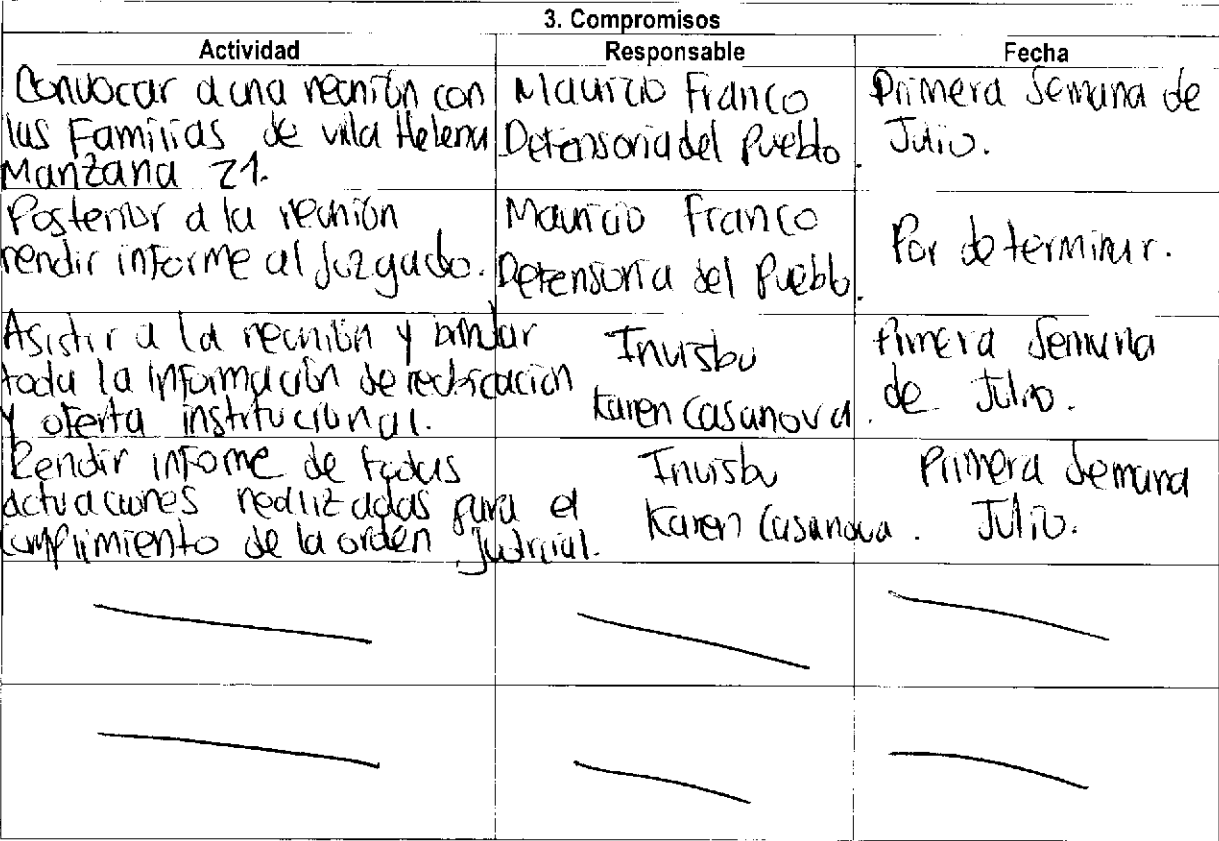 3. Compromisos
Actividad Responsable Fecha
Convocar a una reunión con
las Familias de villa Helena
Manzana 21.
Mauricio Franco
Defensoria del Pueblo.
Primera Semana de
Julio.
Posterior a la reunión
rendir informe al juzgado.
Mauricio Franco
Defensoria del Pueblo.
Por determinar.
Asistir a la reunión y brindar
toda la información de
y oferta institucional.
Invisbu
Karen Casanova.
Primera Semana
de Julio.
Rendir informe de todas
actuaciones realizadas para el
cumplimiento de la orden judicial.
Invisbu
Karen Casanova.
Primera Semana
Julio.